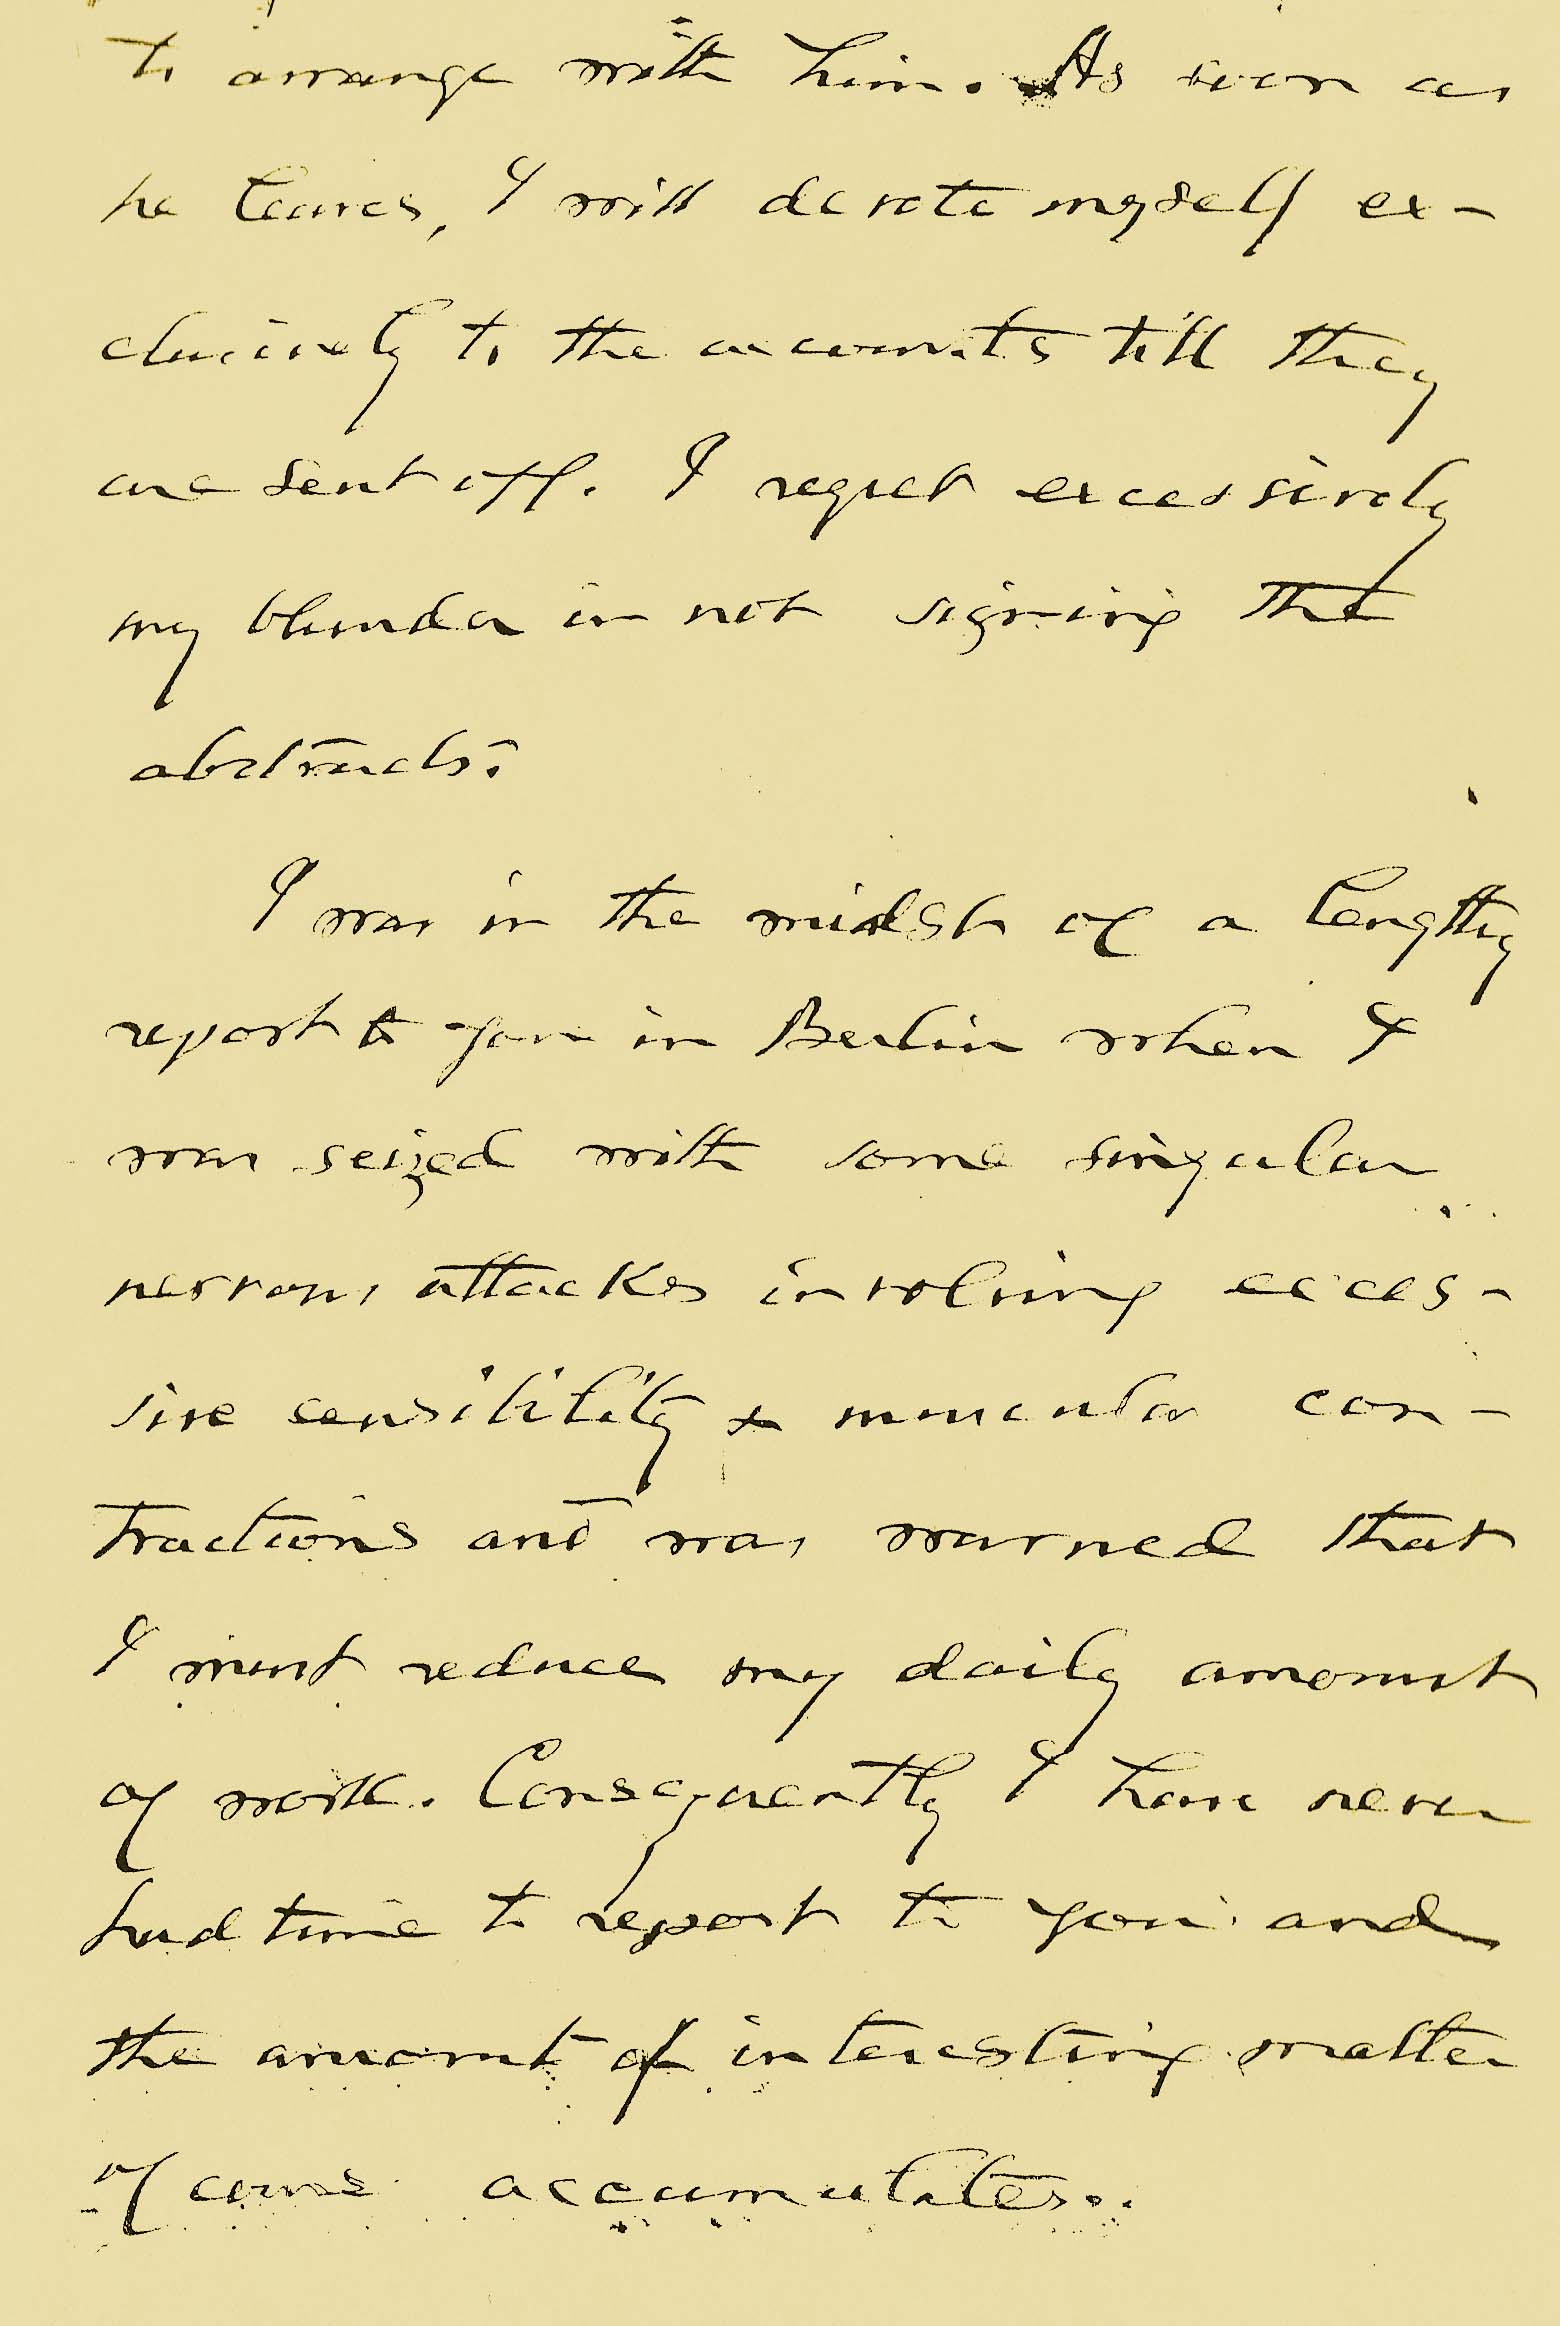 to arrange with him. As soon as
he leaves, I will devote myself ex-
clusively to the accounts till they
are sent off. I regret excessively
my blunder in not signing the
abstracts.
I was in the midst of a lengthy
report to you in Berlin when I
was seized with some singular
nervous attacks involving exces-
sive sensibility & muscular con-
tractions and was warned that
I must reduce my daily amount
of work. Consequently I have never
had time to report to you and
the amount of interesting matter
of course accumulates.